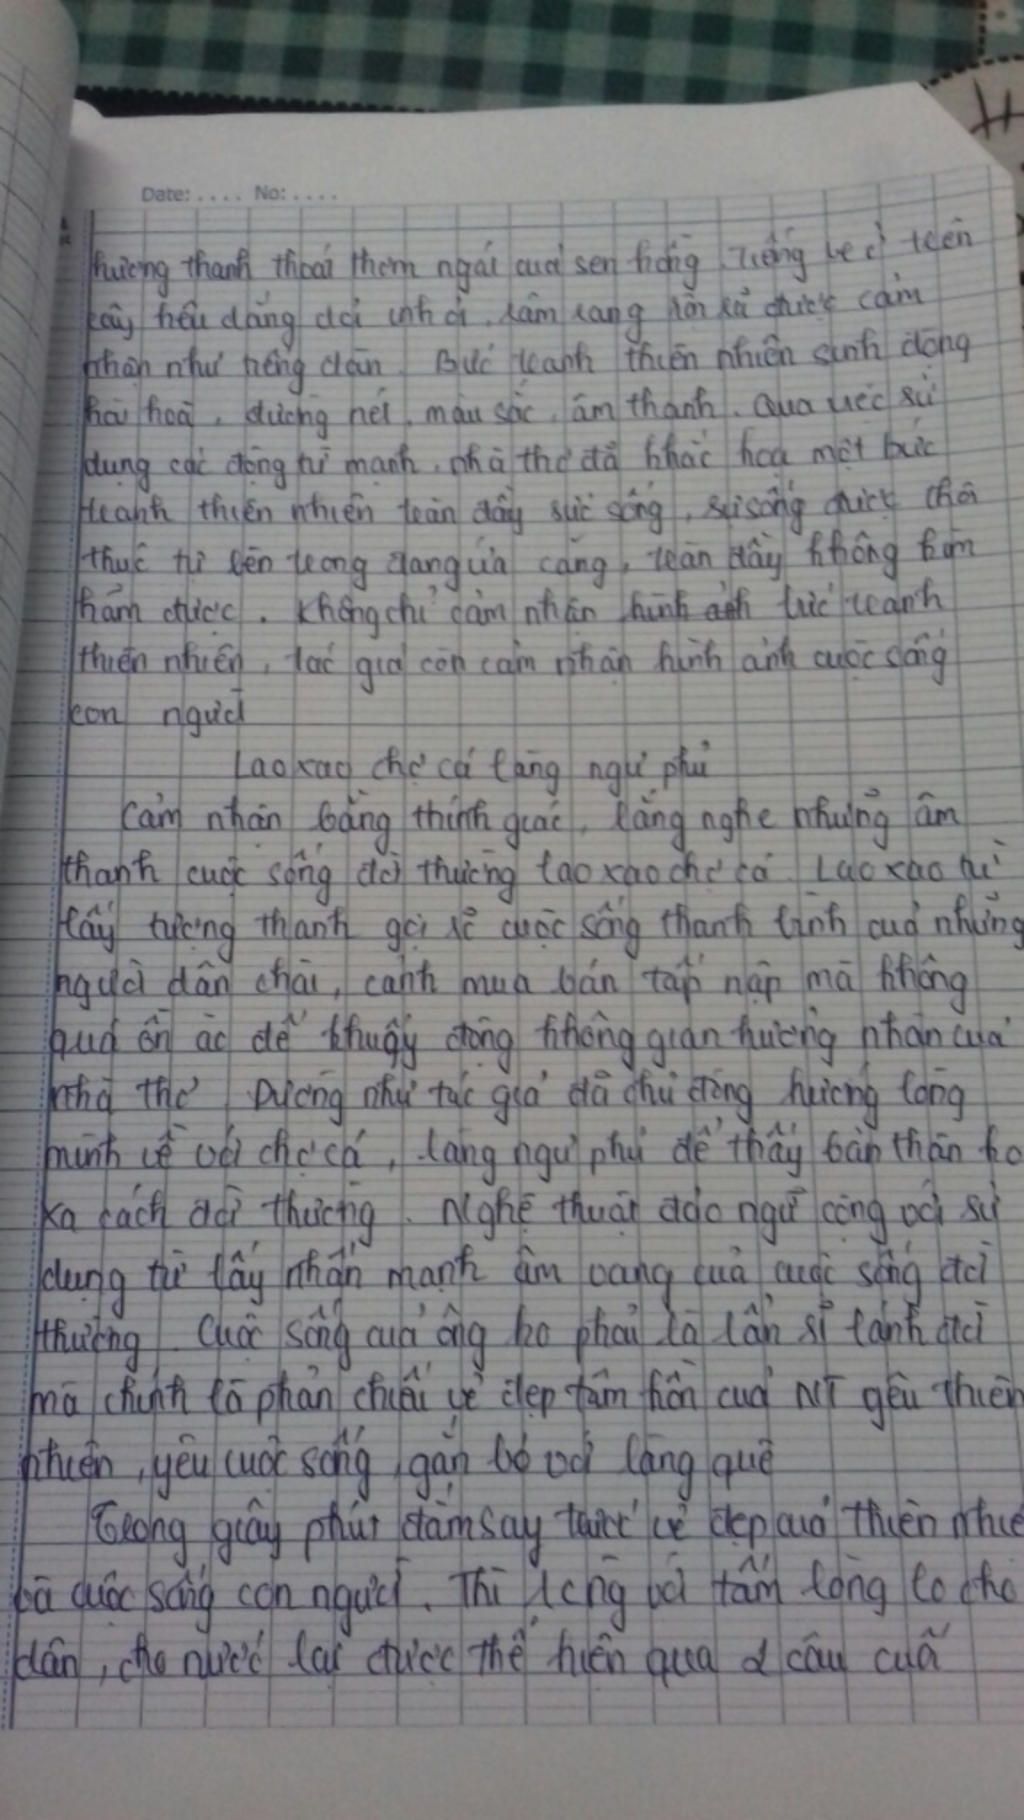 Date: .... No: ....
hương thanh thoát thơm ngát của sen hồng. Tiếng ve ở trên
cây hều dắng dỏi inh ỏi, râm rang rộn rả được cảm
nhận như tiếng đàn. Bức tranh thiên nhiên sinh động
hài hoà, đường nét, màu sắc, âm thanh. Qua việc sử
dụng các động từ mạnh, nhà thơ đã khắc hoạ một bức
tranh thiên nhiên tràn đầy sức sống, sự sống được thôi
thúc từ bên trong đang ứa căng, tràn đầy không kìm
hãm được. Không chỉ cảm nhận bức tranh
thiên nhiên, tác giả còn cảm nhận hình ảnh cuộc sống
con người
Lao xao chợ cá làng ngư phủ
Cảm nhận bằng thính giác, lắng nghe những âm
thanh cuộc sống đời thường lao xao chợ cá. Lao xao từ
láy tượng thanh gợi về cuộc sống thanh bình của những
người dân chài, cảnh mua bán tấp nập mà không
quá ồn ào để khuấy động không gian hưởng nhàn của
nhà thơ. Dường như tác giả đã chủ động hướng lòng
mình về với chợ cá, làng ngư phủ để thấy bản thân ko
xa cách đời thường. Nghệ thuật đảo ngữ cộng với sử
dụng từ láy nhấn mạnh âm vang của cuộc sống đời
thường. Cuộc sống của ông ko phải là lẩn sĩ lánh đời
mà chính là phản chiếu vẻ đẹp tâm hồn của NT yêu thiên
nhiên, yêu cuộc sống, gắn bó với làng quê
Trong giây phút đắm say trước vẻ đẹp của thiên nhiê
và cuộc sống con người. Thì lòng với tấm lòng lo cho
dân, cho nước lại được thể hiện qua 2 câu cuối